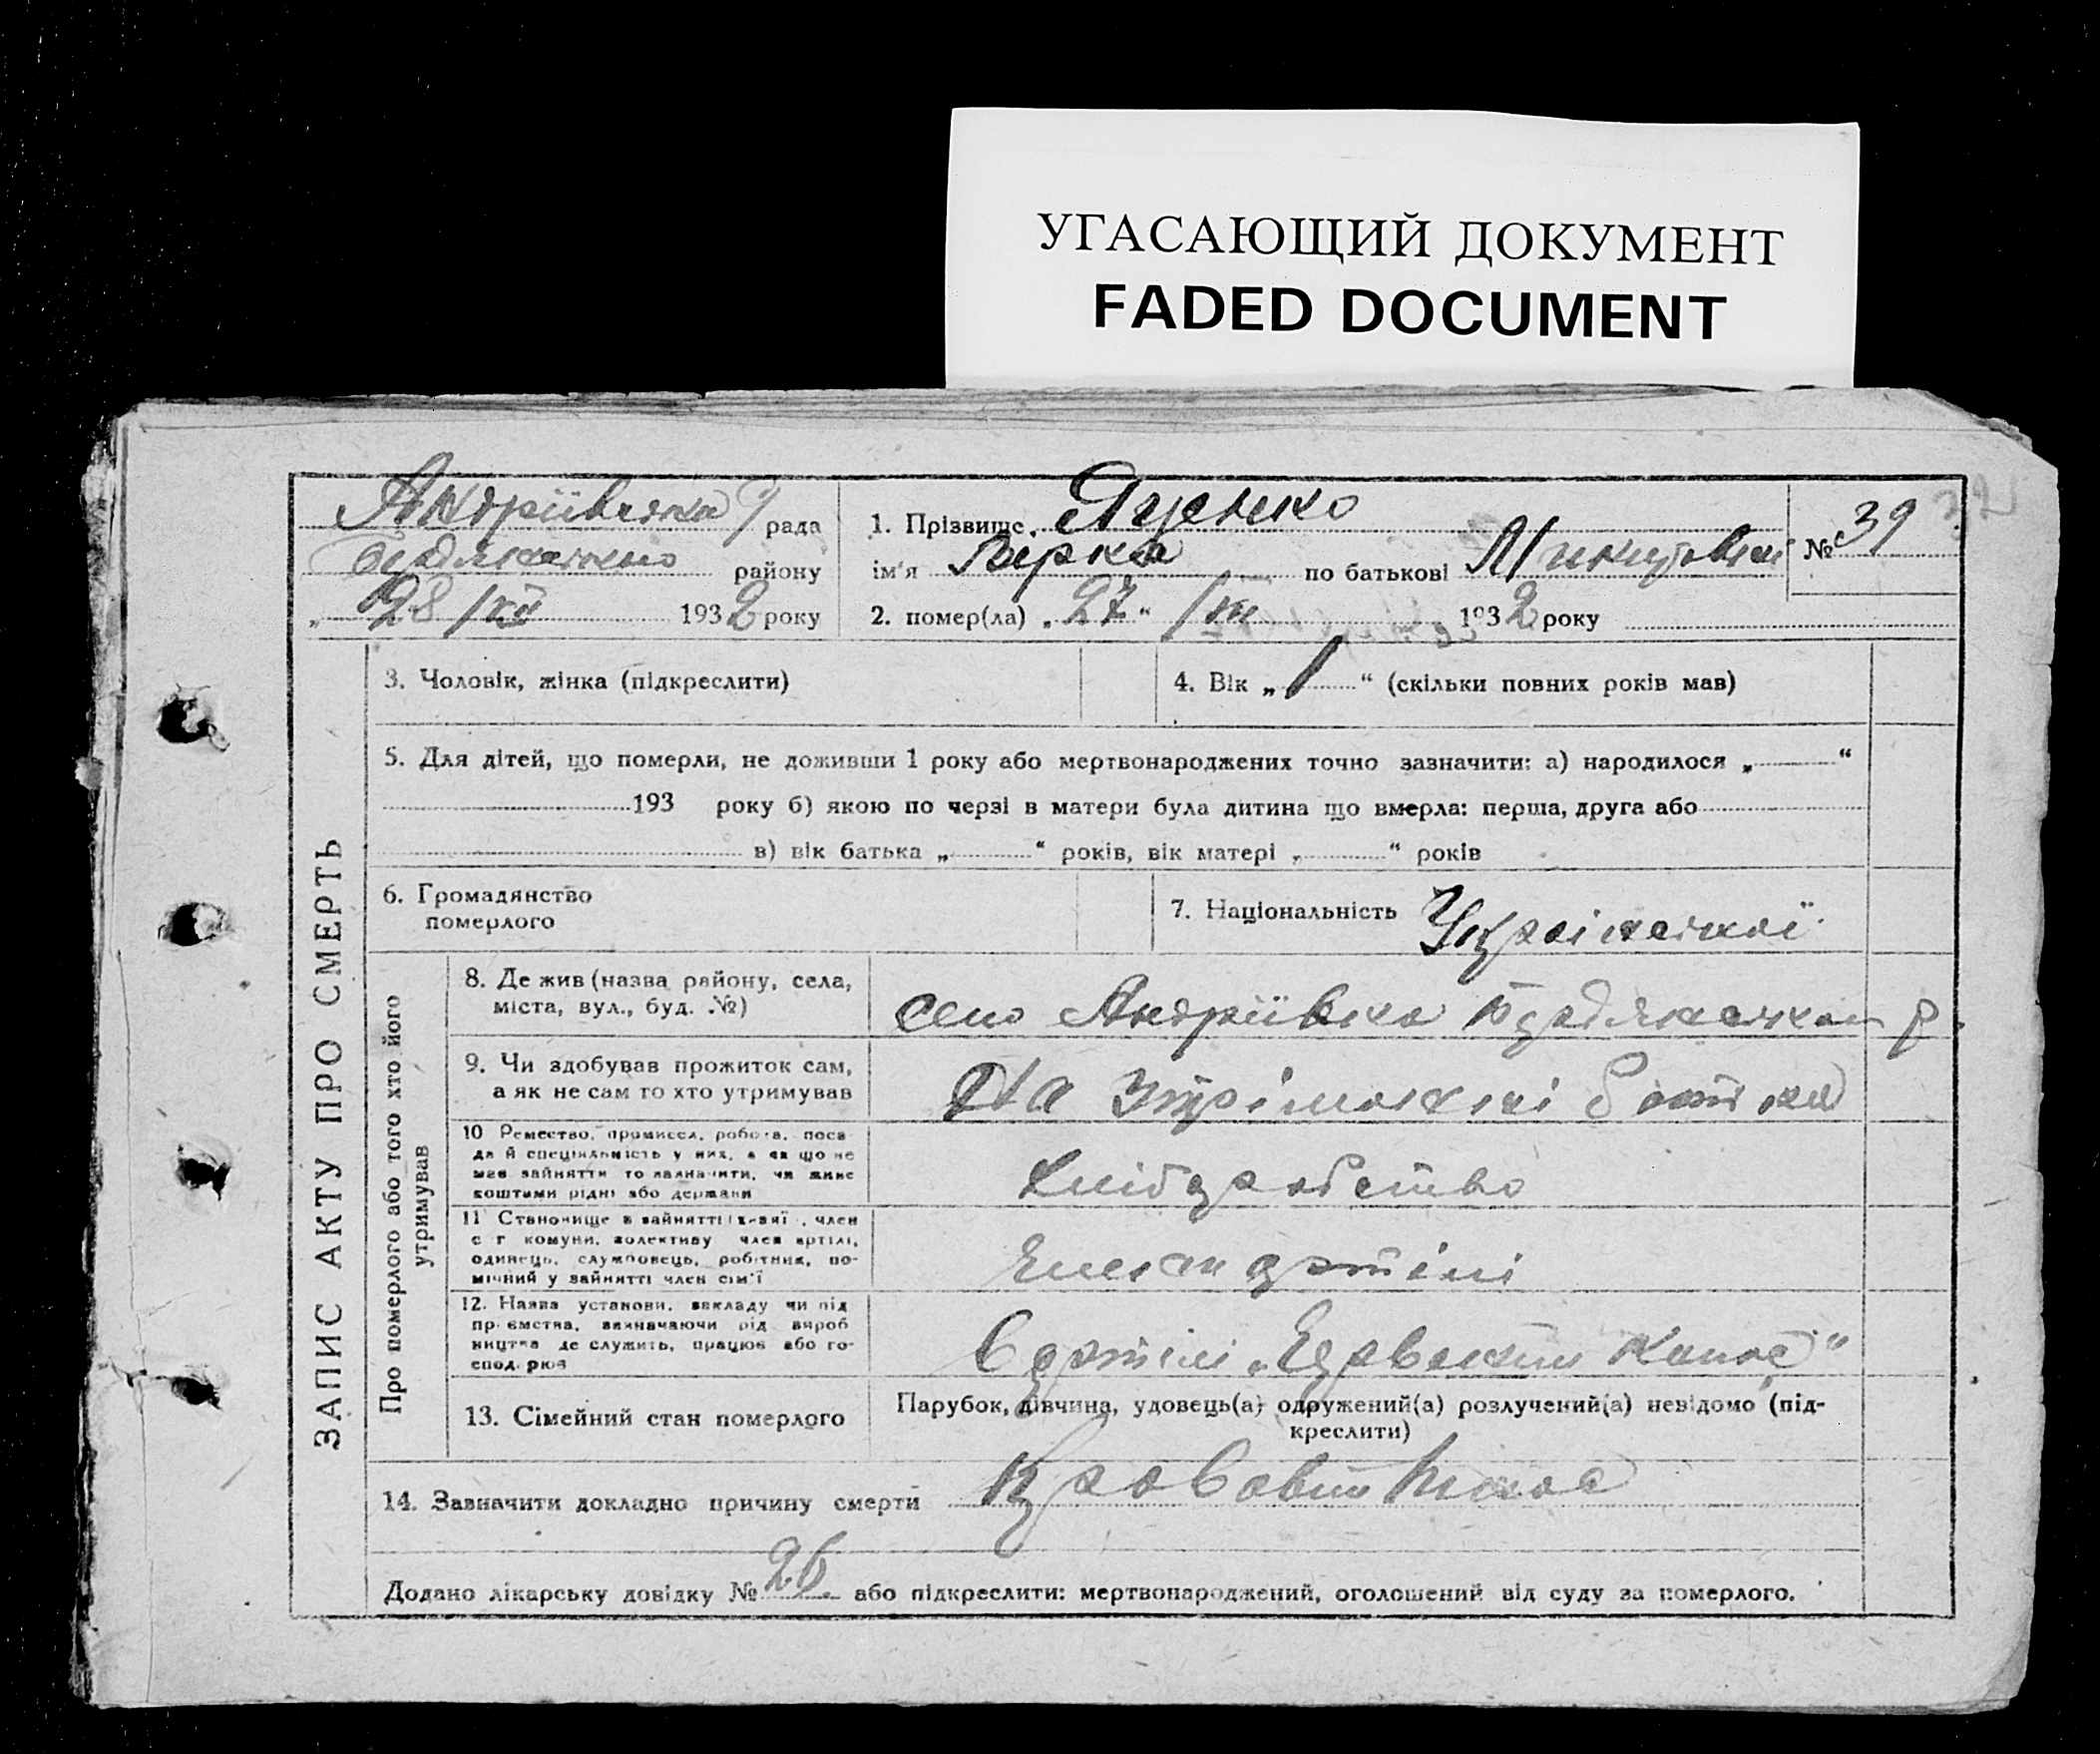 УГАСАЮЩИЙ ДОКУМЕНТ
FADED DOCUMENT
Андріївська рада
району
28/XII 1932 року
1. Прізвище Яценко
ім'я Верка по батькові
№ 39
2. помер(ла) „27“ /XII 1932 року
ЗАПИС АКТУ ПРО СМЕРТЬ
3. Чоловік, жінка (підкреслити)
4. Вік „1“ (скільки повних років мав)
5. Для дітей, що померли, не доживши 1 року або мертвонароджених точно зазначити: а) народилося „ “
193 року б) якою по черзі в матери була дитина що вмерла: перша, друга або
в) вік батька „ “ років, вік матері „ “ років
6. Громадянство
померлого
7. Національність Української
Про померлого або того хто його
утримував
8. Де жив (назва району, села,
міста, вул., буд. №)
село Андріївка р.
9. Чи здобував прожиток сам,
а як не сам то хто утримував
На батька
10 Ремество, промисел, робота, поса-
да й спеціяльність у них, а як що не
мав зайняття то зазначити, чи живе
коштами рідні або держави
хліборобство
11 Становище в зайнятті , член
с г комуни, колективу член артілі,
одинець, службовець, робітник, по-
мічний у зайнятті член сім'ї
член артілі
12. Назва установи, закладу чи під
приємства, зазначаючи рід вироб
ництва де служить, працює або го-
спод. рює
В артілі
13. Сімейний стан померлого
Парубок, дівчина, удовець(а) одружений(а) розлучений(а) невідомо (під-
креслити)
14. Зазначити докладно причину смерти Кровавий понос
Додано лікарську довідку № 26 або підкреслити: мертвонароджений, оголошений від суду за померлого.